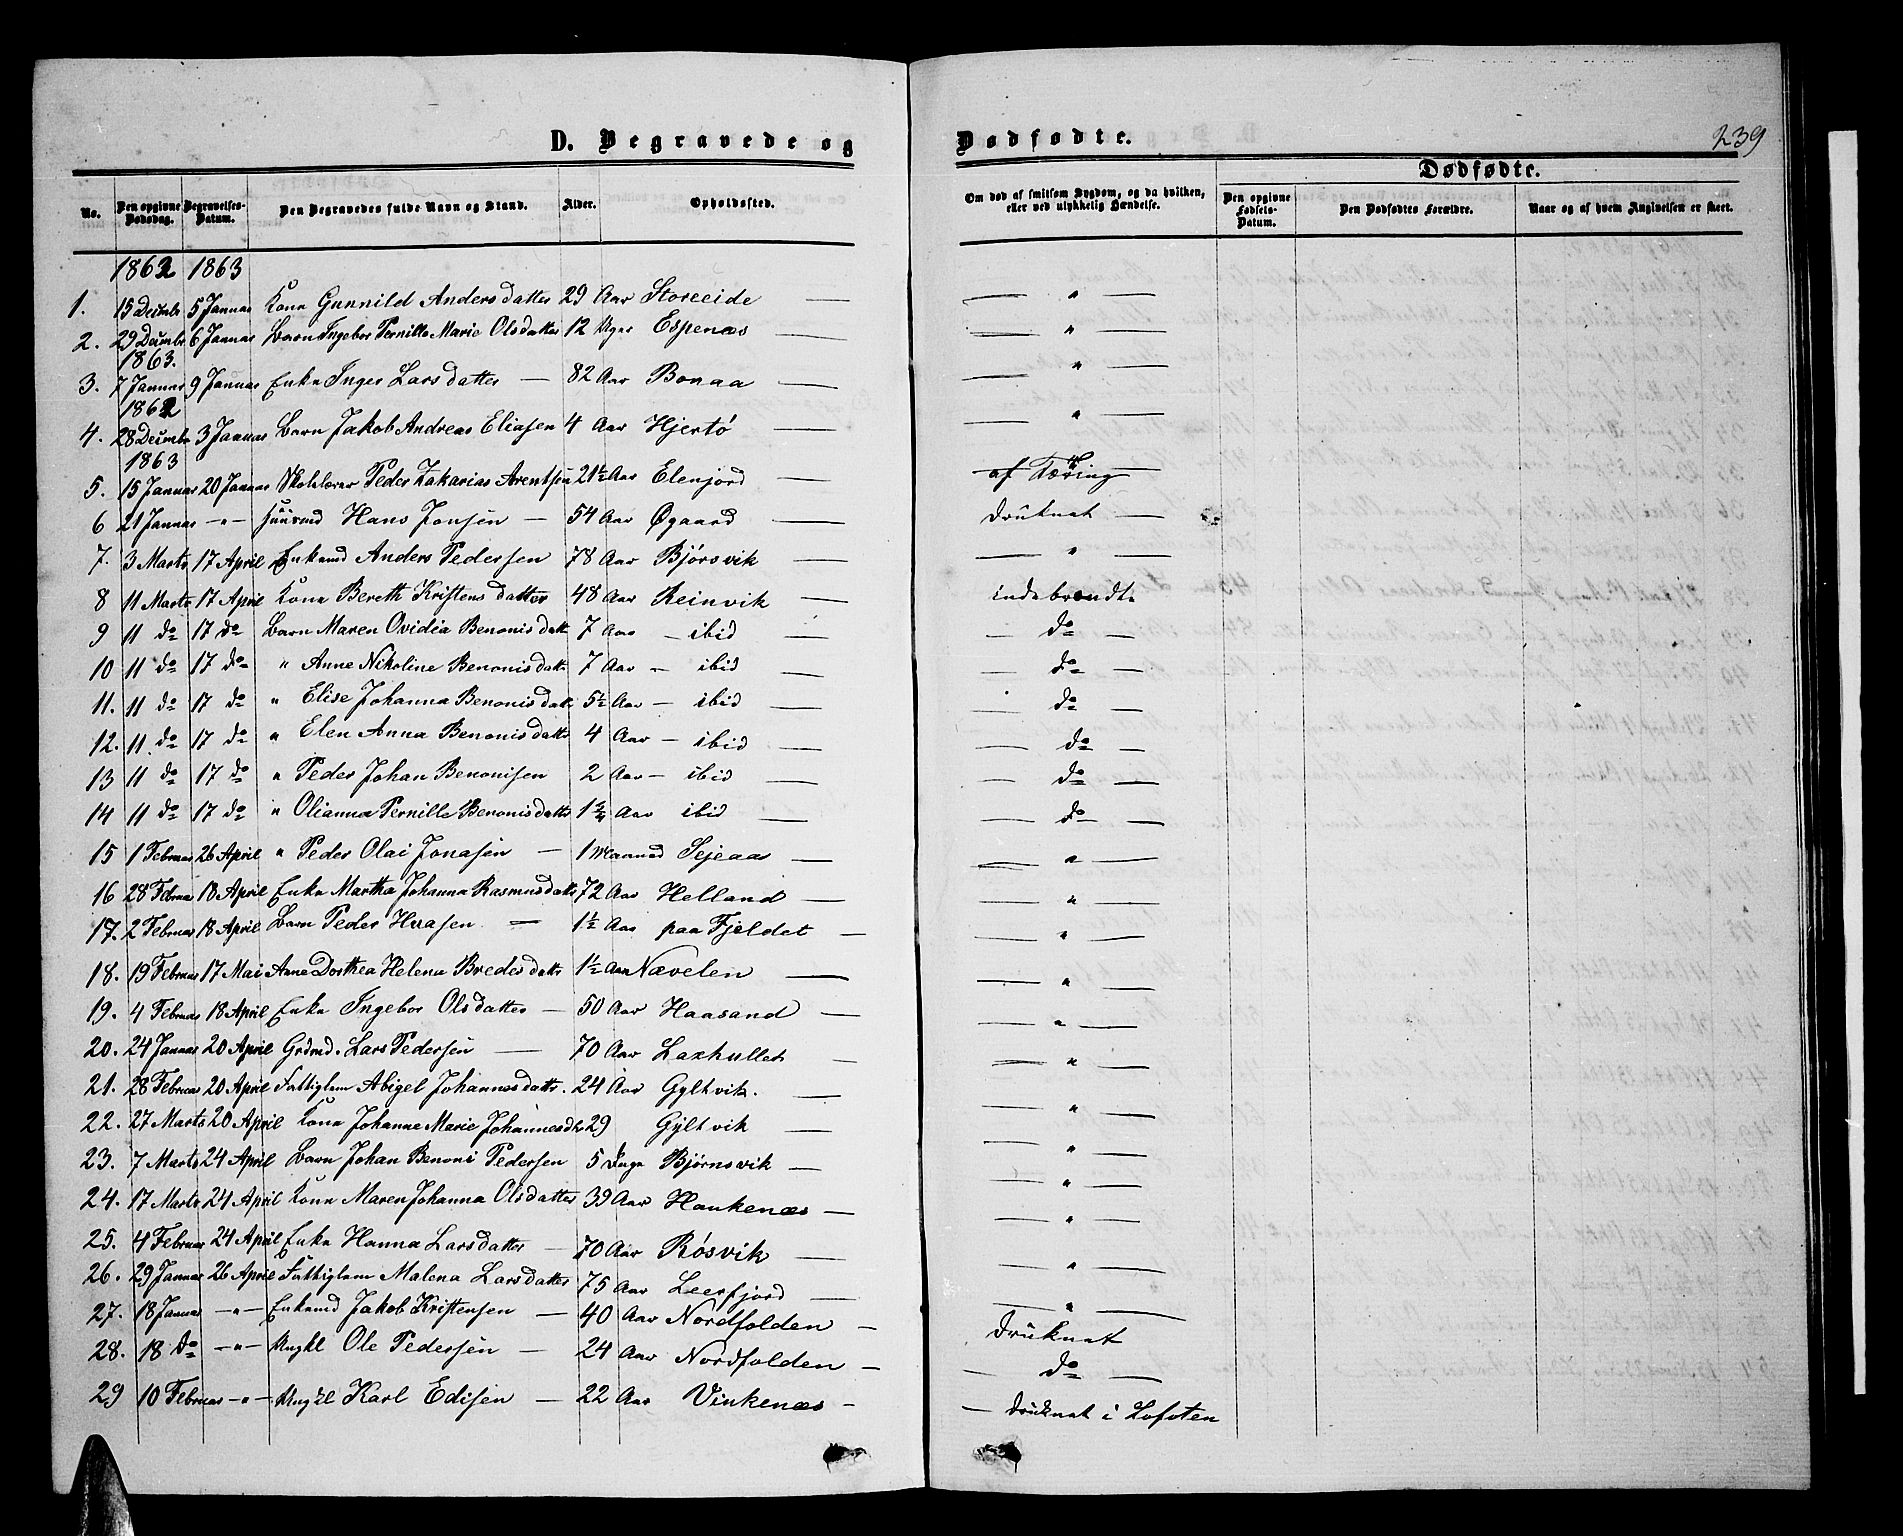 D. Begravede og Dødfødte. 239
Dødfødte.
No. Den opgivne Dødsdag. Begravelses-Datum. Den Begravedes fulde Navn og Stand. Alder. Opholdssted. Om død af smitsom Sygdom, og da hvilken, eller ved ulykkelig Hændelse. Den opgivne Fødsels-Datum. Den Dødfødtes Forældre. Naar og af hvem Angivelsen er skeet.
1862 1863
1. 15 Decembr 5 Januar Kone Gunnild Andersdatter 29 Aar Storeeide — — " —
2. 29 Decembr 6 Januar Barn Ingebor Pernille Marie Olsdatter 12 Uger Espenæs — — " —
1863.
3. 7 Januar 9 Januar Enke Inger Larsdatter — 82 Aar Bonaa — — " —
1862
4. 28 Decembr 3 Januar Barn Jakob Andreas Eliasen 4 Aar Hjertø — — " —
1863
5. 15 Januar 20 Januar Skolelærer Peder Zakarias Arentsen 21½ Aar Elenjord — af Tæring
6 21 Januar — " — Hans Jonsen — 54 Aar Øgaard — druknet —
7. 3 Marts 17 April Enkemd Anders Pedersen 78 Aar Bjørsvik — " —
8 11 Marts 17 April Kone Bereth Kristensdatter 48 Aar Reinvik — indebrendt
9 11 do 17 do Barn Maren Ovidia Benonisdatt 7 Aar — ibid — — do —
10 11 do 17 do " Anne Nikoline Benonisdatt 7 Aar — ibid — — do —
11. 11 do 17 do " Elise Johanna Benonisdatt 5½ Aar — ibid — — do —
12. 11 do 17 do " Elen Anna Benonisdatt 4 Aar — ibid — — do —
13 11 do 17 do " Peder Johan Benonisen 2 Aar — ibid — — do —
14 11 do 17 do " Olianna Pernille Benonisdatt 1¾ Aar ibid — — do —
15 1 Februar 26 April " Peder Olai Jonasen — 1 Maaned Sejeaas — — " —
16 28 Februar 18 April Enke Martha Johanna Rasmusdatt 72 Aar Helland — — " —
17. 2 Februar 18 April Barn Peder Haasen — 1½ Aar paa Fjeldet — — " —
18. 19 Februar 17 Mai Anne Dorthea Helena Bredesdatt 1½ Aar Nævelen — — " —
19. 4 Februar 18 April Enke Ingebor Olsdatter — 50 Aar Haasand — — " —
20. 24 Januar 20 April Grdmd. Lars Pedersen — 70 Aar Laxhullet — — " —
21. 28 Februar 20 April Fattiglem Abigel Johannesdattr. 24 Aar Gyltvik. — — " —
22. 27 Marts 20 April Kone Johanne Marie Johannesdtr 29 Gyltvik — — " —
23. 7 Marts 24 April Barn Johan Benoni Pedersen 5 Bjørnsvik — — " —
24. 17 Marts 24 April Kone Maren Johanna Olsdatter 39 Aar Haukenæs — — " —
25. 4 Februar 24 April Enke Hanna Larsdatter — 70 Aar Røsvik — — " —
26. 29 Januar 26 April Fattiglem Malena Larsdatter 75 Aar Leerfjord — — " —
27. 18 Januar — " — Enkemd Jakob Kristensen — 40 Aar Nordfolden — druknet
28. 18 do — " — Ungkl Ole Pedersen — 24 Aar Nordfolden — — do —
29 10 Februar — " — Ungkl Karl Edisen — 22 Aar Vinkenæs — — druknet i Lofoten